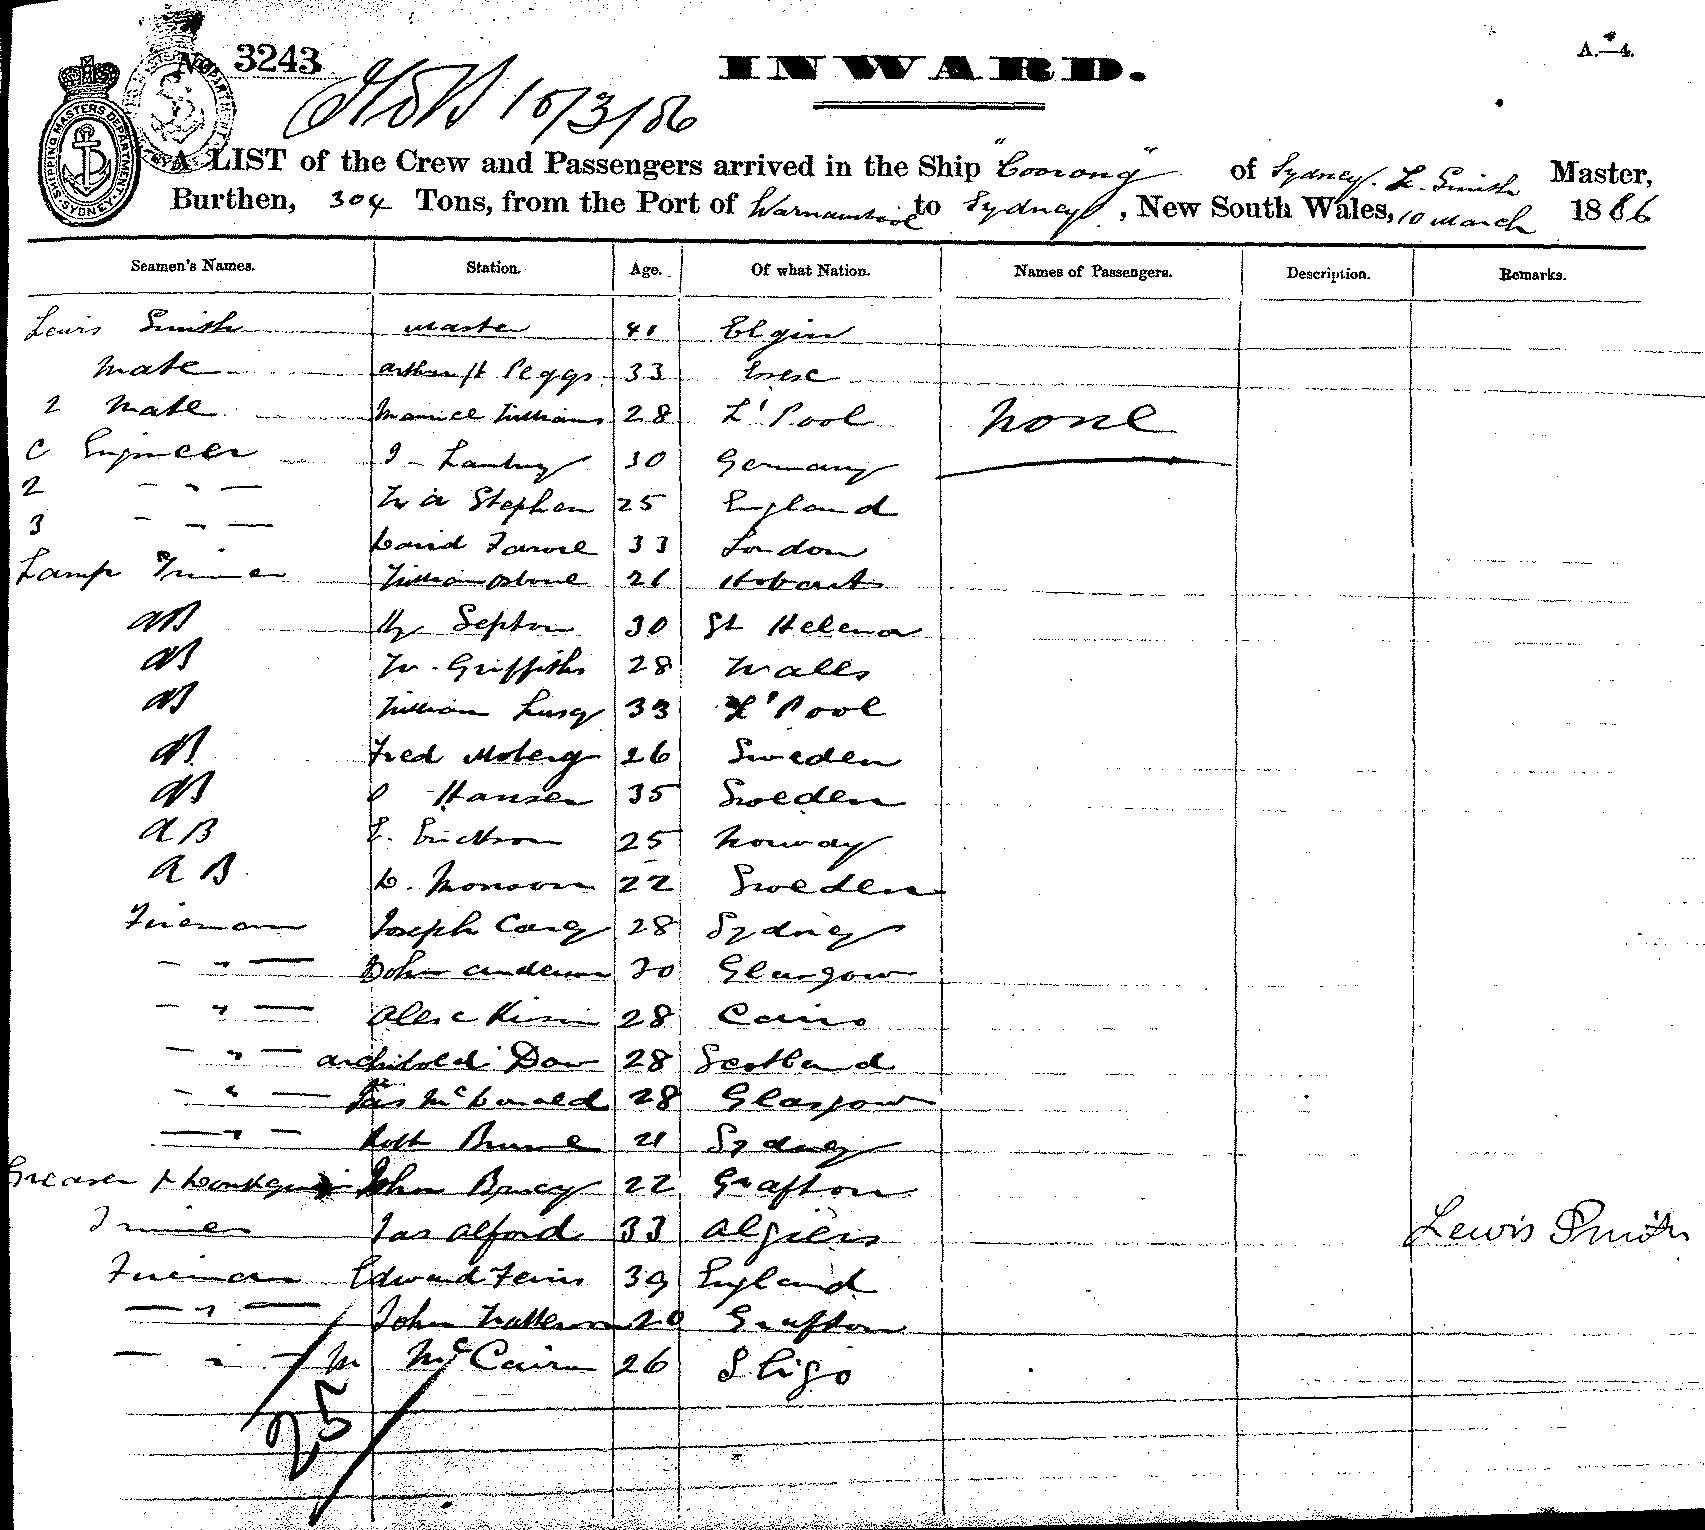 No 3243
INWARD.
A.—4.
10/3/86
SHIPPING MASTERS DEPARTMENT SYDNEY
A LIST of the Crew and Passengers arrived in the Ship "Coorong" of Sydney. L. Smith Master,
Burthen, 304 Tons, from the Port of to Sydney, New South Wales, 10 March 1886
Seamen's Names. Station. Age. Of what Nation. Names of Passengers. Description. Remarks.
Lewis Smith Master 41 Elgin
Mate Arthur H Peggs 33
2 Mate Maurice Williams 28 L'Pool none
C Engineer 30 Germany
2 - " - W A Stephen 25 England
3 - " - David 33 London
Lamp Trimer William 26 Hobart
AB Hy Septon 30 St Helena
AB W. Griffiths 28 Walls
AB William 33 L'Pool
AB Fred Moberg 26 Sweden
AB Hansen 35 Sweden
AB E. Erickson 25 Norway
AB D. Monson 22 Sweden
Fireman Joseph Carey 28 Sydney
- " - John Anderson 30 Glasgow
- " - 28 Cairo
- " - Archibold Dow 28 Scotland
- " - Jas McDonald 28 Glasgow
- " - Robt 21 Sydney
Greaser & Donkeyman John 22 Grafton
Trimer Jas Alford 33 Algiers Lewis Smith
Fireman Edward 39 England
- " - John 20 Grafton
- " - M McCairn 26 Sligo
25